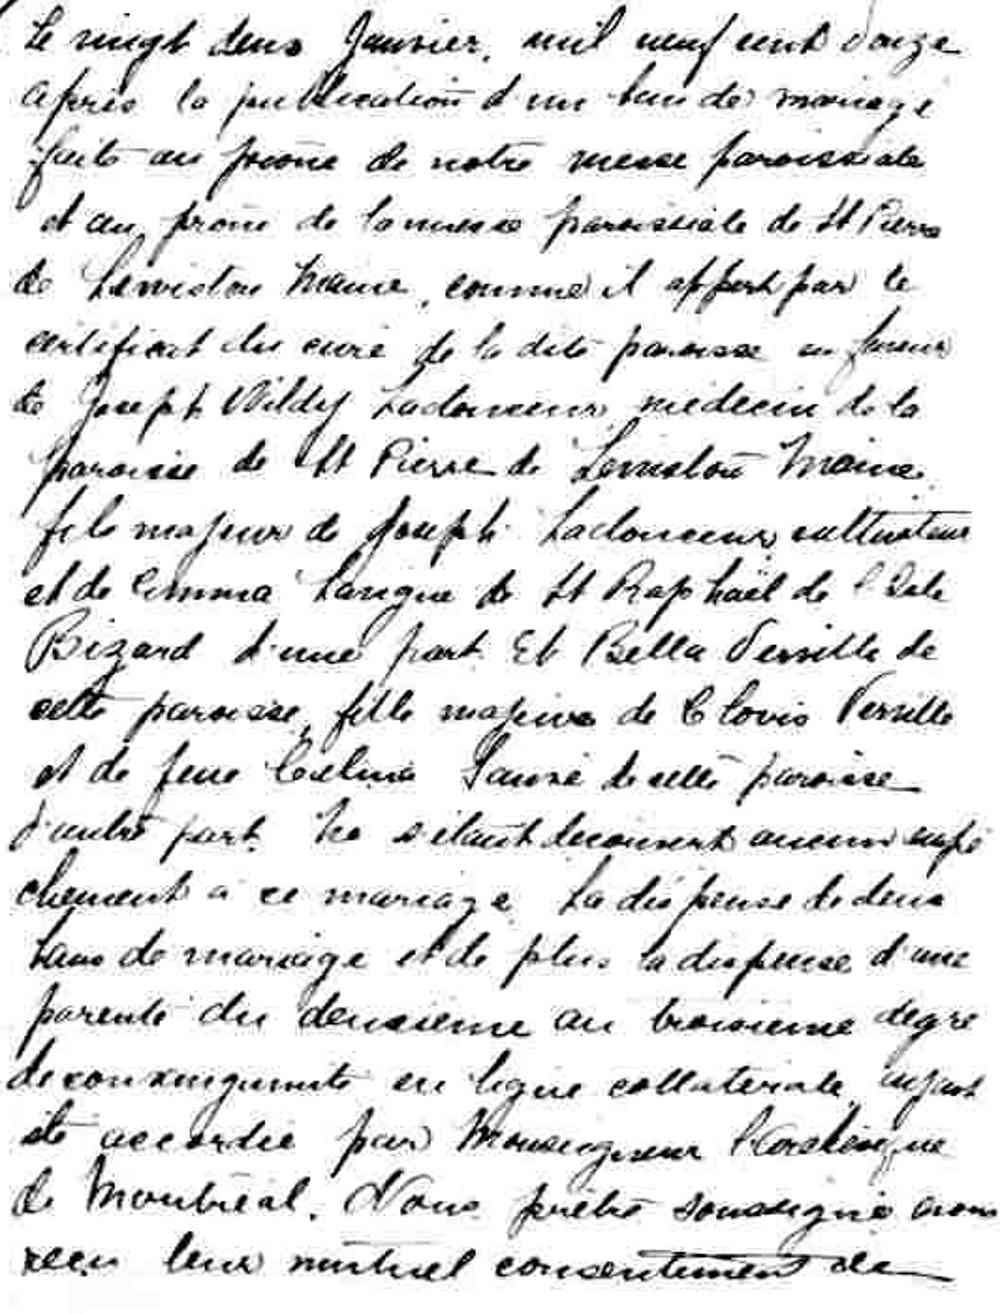 Le vingt deux Janvier, mil neuf cent douze
après la publication d'un ban de mariage
faite au prône de notre messe paroissiale
et au prône de la messe paroissiale de St Pierre
de Lewiston Maine, comme il appert par le
certificat du curé de la dite paroisse en faveur
de Joseph Wildy Ladouceur, médecin de la
paroisse de St Pierre de Lewiston Maine
fils majeur de Joseph Ladouceur, cultivateur
et de Emma de St Raphaël de l'Isle
Bizard d'une part. Et Bella Versille de
cette paroisse, fille majeure de Clovis Versille
et de feue Célina Sauvé de cette paroisse
d'autre part. Ne s'étant découvert aucun empê
chement à ce mariage. La dispense de deux
bans de mariage et de plus la dispense d'une
parenté du deuxième au troisième degré
de consanguinité en ligne collatérale, ayant
été accordée par Monseigneur l'Archevêque
de Montréal. Nous prêtre soussigné avons
reçu leur mutuel consentement de